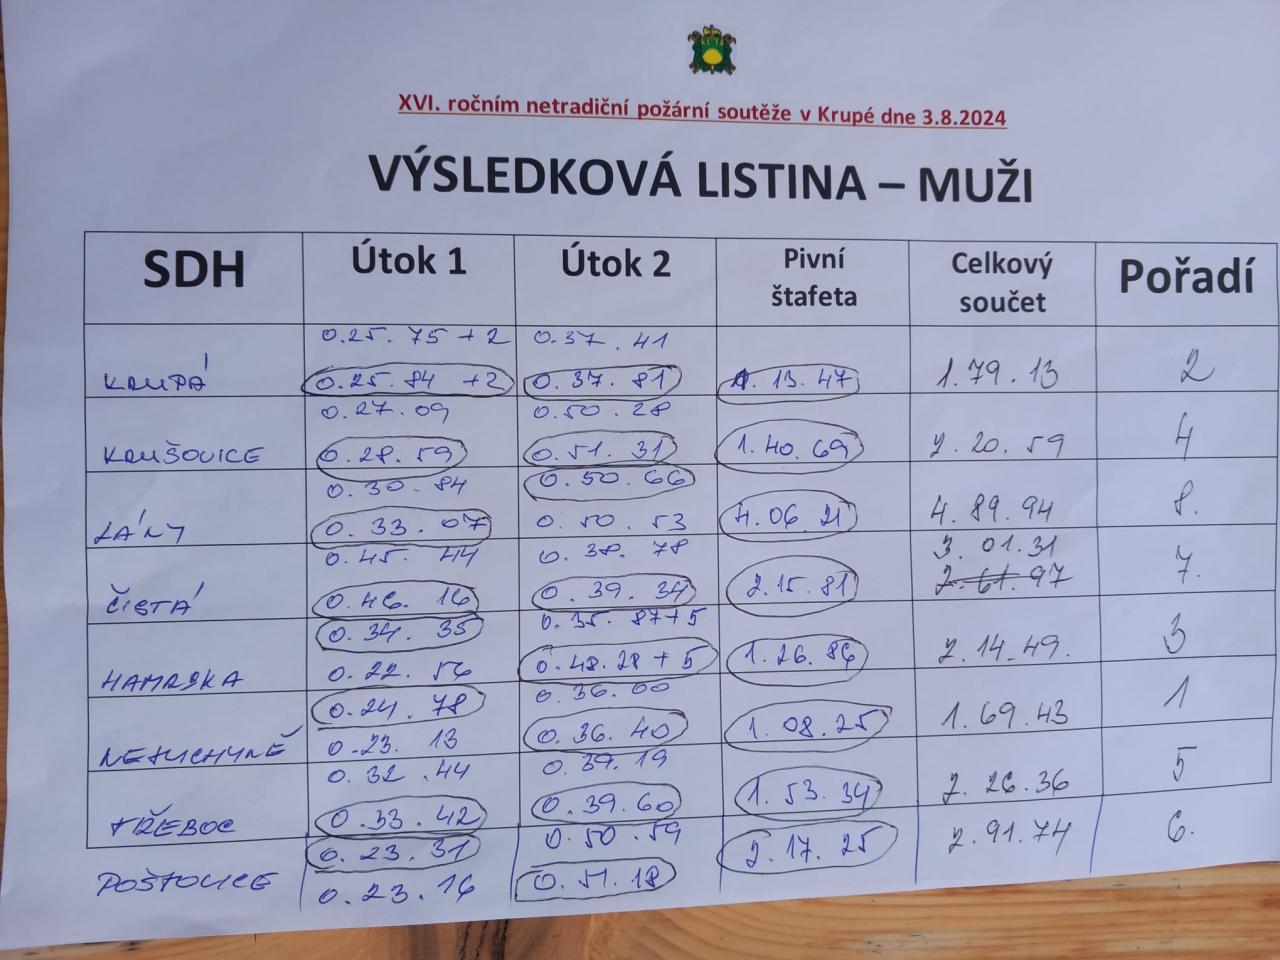 XVI. ročním netradiční požární soutěže v Krupé dne 3.8.2024
VÝSLEDKOVÁ LISTINA – MUŽI
SDH Útok 1 Útok 2 Pivní štafeta Celkový součet Pořadí
0.25. 75 + 2 0.37. 41
KRUPÁ 0.25. 84 +2 0. 37. 81 1. 13. 47 1. 79. 13 2
0.27.09 0.50. 28
KRUŠOVICE 0.28. 59 0. 51. 31 1. 40. 69 2. 20. 59 4
0. 30. 84 0. 50. 66
LÁNY 0. 33. 07 0. 50. 53 4. 06. 21 4. 89. 94 8.
0.45. 44 0. 38. 78 3. 01.31
ČISTÁ 0. 46. 16 0. 39. 34 2. 15. 81 2. 61. 97 7.
0. 34. 35 0. 35. 87+5
HAMRSKA 0. 22. 56 0. 48.28 + 5 1. 26. 86 2. 14. 49. 3
0. 24. 78 0. 36. 00
NESUCHYNĚ 0.23. 13 0. 36. 40 1. 08. 25 1. 69. 43 1
0. 32. 44 0. 39. 19
TŘEBOC 0. 33. 42 0. 39. 60 1. 53. 34 2. 26. 36 5
0. 23. 31 0. 50. 59
POŠTOVICE 0. 23. 16 0. 51. 18 2. 17. 25 2. 91. 74 6.